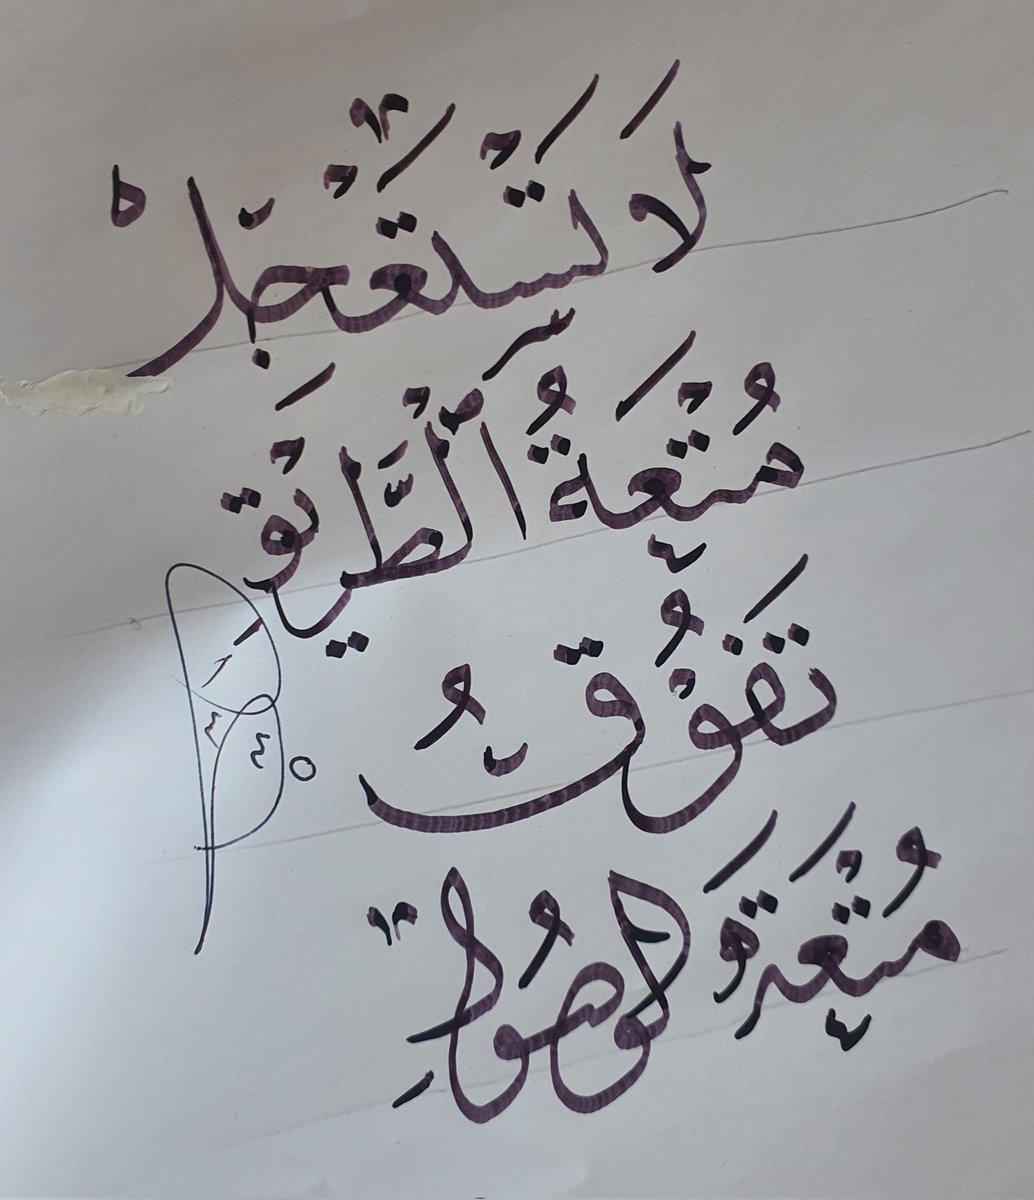 لَا تَسْتَعْجِلْ
مُتْعَةُ ٱلْطَّرِيْقِ
تَفُوْقُ
مُتْعَةَ الوُصُولِ
١٤٤٥